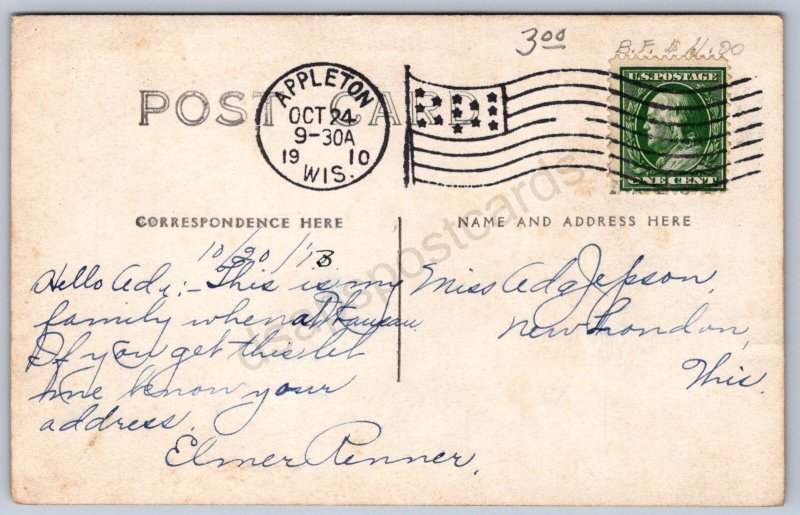 3 00
B.F. $ 11.00
POST CARD
APPLETON
OCT 24
9-30A
19 10
WIS.
U.S. POSTAGE
ONE CENT
CORRESPONDENCE HERE
NAME AND ADDRESS HERE
10/20/13
Hello Ada:- This is my
family when at Wausau.
If you get this let
me know your
address.
Elmer Renner.
Miss Ada Jepson,
New London,
Wis.